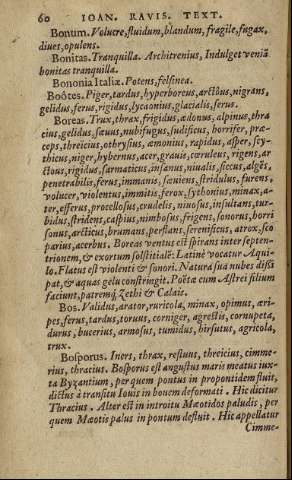 60 IOAN. RAVIS. TEXT.
Bonum. Volucre, fluidum, blandum, fragile, fugax,
diues, opulens.
Bonitas. Tranquilla. Architrenius, Indulget veniã
bonitas tranquilla.
Bononia Italiæ. Potens, felsinea.
Boôtes. Piger, tardus, hyperboreus, arctôus, nigrans,
gelidus, ferus, rigidus, lycaonius, glacialis, serus.
Boreas. Trux, thrax, frigidus, ædonus, alpinus, thra
cius, gelidus, sæuus, nubifugus, sudificus, horrifer, præ-
ceps, threicius, othrysius, æmonius, rapidus, asper, scy-
thicus, niger, hybernus, acer, grauis, cœruleus, rigens, ar
ctôus, rigidus, sarmaticus, insanus, niualis, siccus, algẽs,
penetrabilis, ferus, immanis, sæuiens, stridulus, furens,
volucer, violentus, immitis, ferox, sythonius, minax, a-
ter, efferus, procellosus, crudelis, niuosus, insultans, tur-
bidus, stridens, caspius, nimbosus, frigens, sonorus, horri
sonus, arcticus, brumans, perflans, serenificus, atrox, sco
parius, acerbus. Boreas ventus est spirans inter septen-
trionem, & exortum solstitialẽ: Latinè vocatur Aqui-
lo. Flatus est violenti & sonori. Natura sua nubes disci
pat, & aquas gelu constringit. Poëtæ eum Astrei filium
faciunt, patremq; Zethi & Calais.
Bos. Validus, arator, ruricola, minax, opimus, æri-
pes, ferus, tardus, toruus, corniger, agrestis, cornupeta,
durus, bucerius, armosus, tumidus, hirsutus, agricola,
trux.
Bosporus. Iners, thrax, resluus, threicius, cimme-
rius, thracius. Bosporus est angustus maris meatus iux-
ta Byzantium, per quem pontus in propontidem fluit,
dictus à transitu Iouis in bouem deformati. Hic dicitur
Thracius. Alter est in introitu Mæotidos paludis, per
quem Mæotis palus in pontum defluit. Hic appellatur
Cimme-